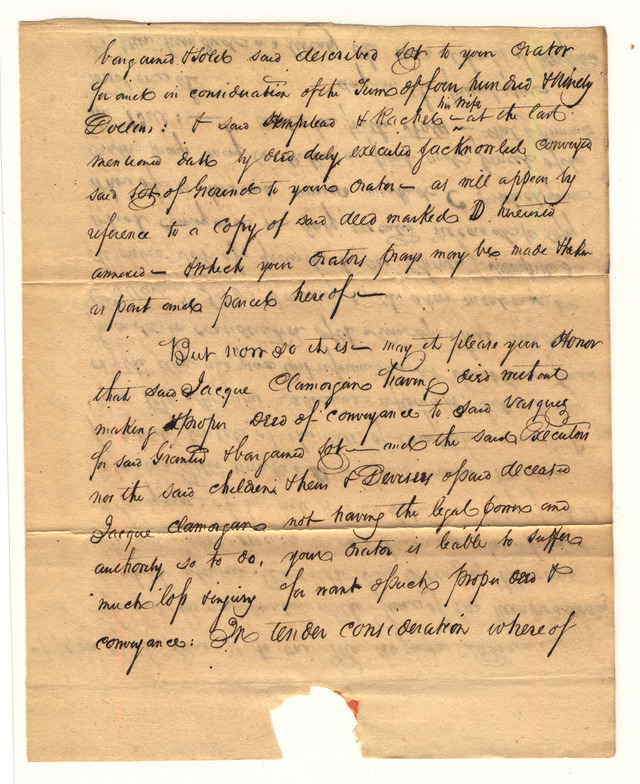 bargained & sold said described lot to your Orator
for and in consideration of the Sum of four hundred & Ninety
his wife
Dollars: & said Hempstead & Rachel — at the last
mentioned date by deed duly executed & acknowled conveyed
said lot of Ground to your Orator — as will appear by
reference to a copy of said deed marked D hereunto
annexed — & which your Orators prays may be made & taken
as part and parcel hereof —
But now so it is — may it please your Honor
that said Jacque Clamorgan having died without
making proper deed of conveyance to said Vasquez
for said Granted & bargained lot — and the said Executors
nor the said children & heirs & Devisees of said deceased
Jacque Clamorgan not having the legal power and
authority so to do, your Orator is liable to suffer
much loss & injury for want of such proper deed &
conveyance: In tender consideration whereof